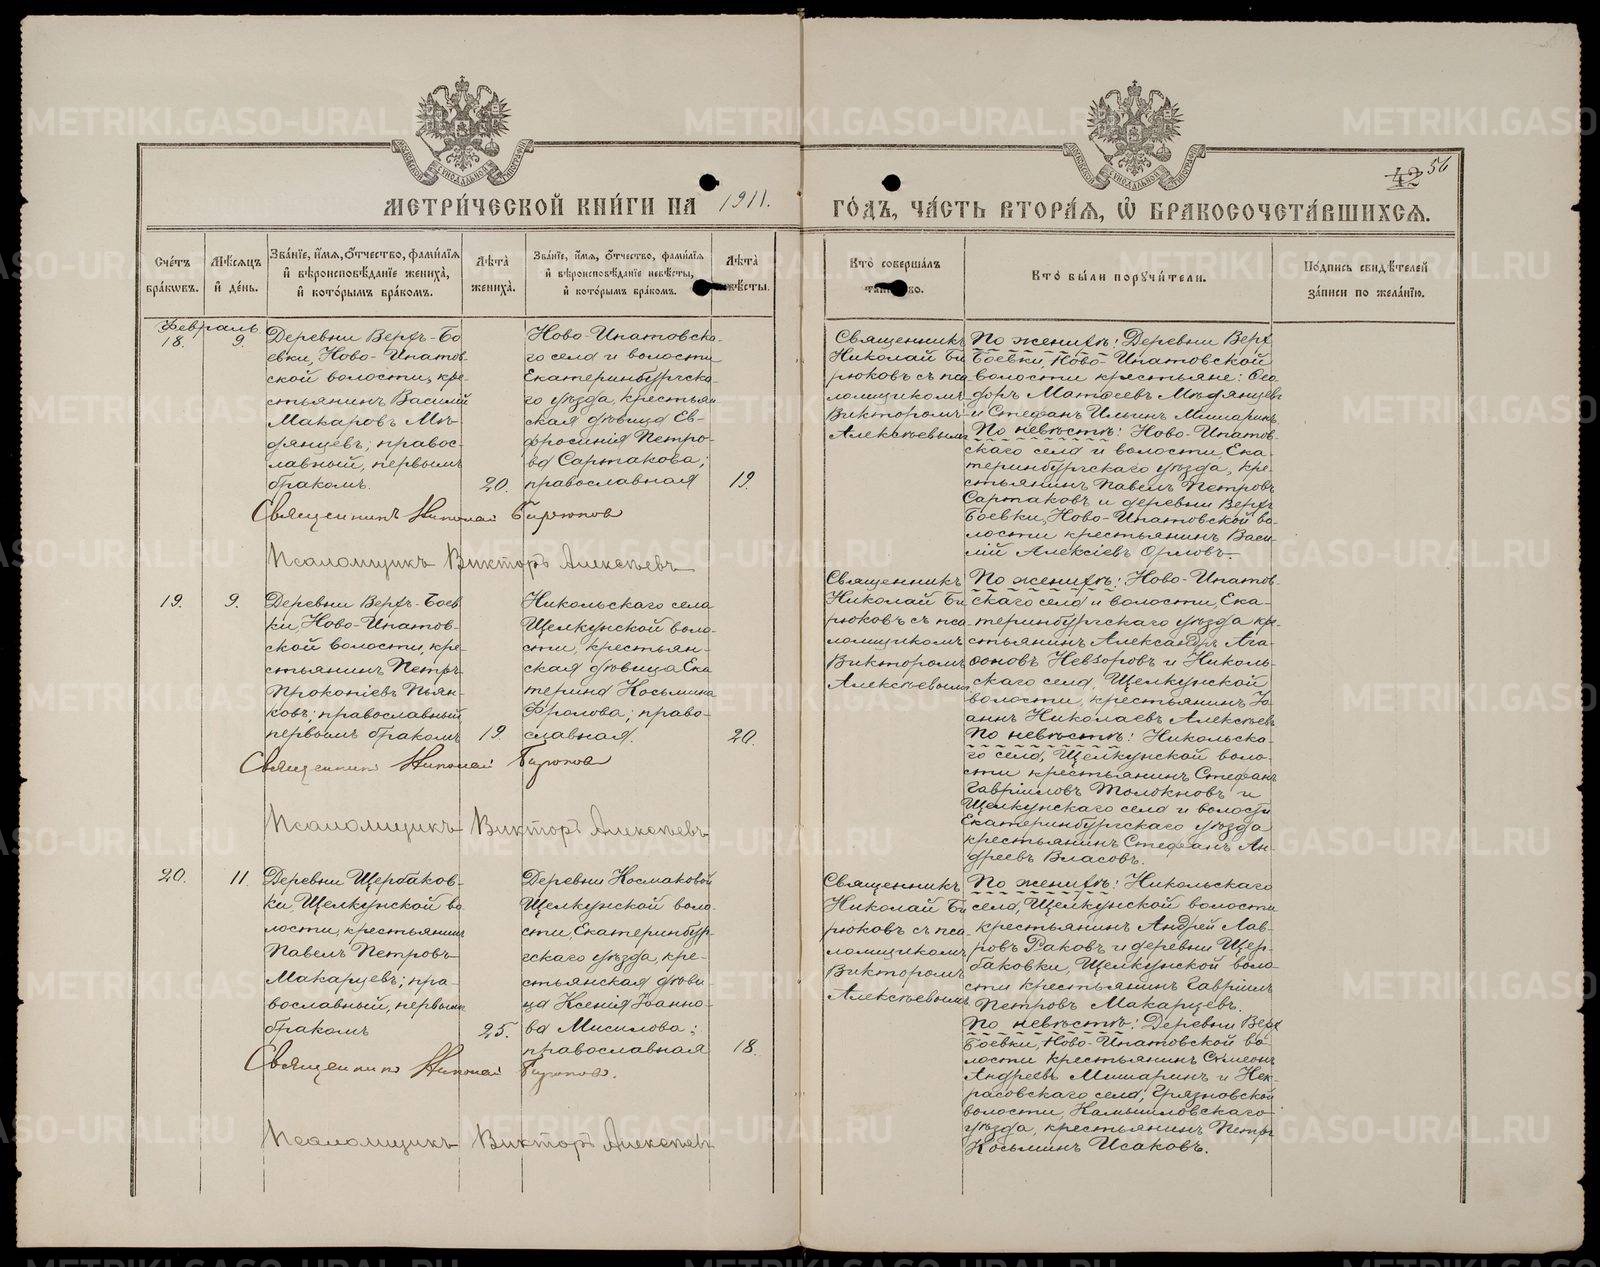 МЕТРИ́ЧЕСКОЙ КНИ́ГИ НА 1911.
ГО́ДЪ, ЧА́СТЬ ВТОРА́Я, Ѽ БРАКОСОЧЕТА́ВШИХСЯ.
42 56
Сче́тъ бра́кѡвъ.
Мѣ́сяцъ й де́нь.
Зва́нїе, и́мя, о́тчество, фами́лїя
й вѣроисповѣ́данїе жениха̀,
й кото́рымъ бра́комъ.
Лѣта̀ жениха̀.
Зва́нїе, и́мя, о́тчество, фами́лїя
й вѣроисповѣ́данїе невѣ́сты,
й кото́рымъ бра́комъ.
Лѣта̀ невѣ́сты.
Кто̀ соверша́лъ
Кто̀ бы́ли порꙋчи́тели.
По́дпись свидѣ́телей
за́писи по жела́нїю.
Февраль
18.
9.
Деревни Верхъ-Бо
евки, Ново-Ипатов
ской волости, кре-
стьянинъ Василий
Макаровъ Мѣ-
дянцевъ; правос-
лавный, первымъ
бракомъ.
20.
Ново-Ипатовска-
го села и волости
Екатеринбургска-
го уѣзда, крестьян
ская дѣвица Ев-
фросинія Петро-
ва Сартакова;
православная
19.
Священникъ Николай Бирюковъ
Псаломщикъ Викторъ Алексѣевъ
Священникъ
Николай Би
рюковъ съ пса
ломщикомъ
Викторомъ
Алексѣевымъ
По женихѣ: Деревни Верх
Боевки, Ново-Ипатовской
волости крестьяне: Ѳео
доръ Матѳеевъ Мѣдянцевъ
и Стефанъ Ильинъ Мишаринъ
По невѣстѣ: Ново-Ипатов-
скаго села и волости, Ека-
теринбургскаго уѣзда, кре-
стьянинъ Павелъ Петровъ
Сартаковъ и деревни Верхъ
Боевки, Ново-Ипатовской во-
лости крестьянинъ Васи-
лій Алексіевъ Орловъ.
19.
9.
Деревни Верхъ-Боев
ки, Ново-Ипатов-
ской волости, кре-
стьянинъ Петръ
Прокопіевъ Пьян-
ковъ; православный
первымъ бракомъ
19.
Никольскаго села
Щелкунской воло-
сти, крестьян-
ская дѣвица Ека
терина Косьмина
Фролова; право-
славная.
20.
Священникъ Николай Бирюковъ
Псаломщикъ Викторъ Алексѣевъ
Священникъ
Николай Би
рюковъ съ пса
ломщикомъ
Викторомъ
Алексѣевымъ
По женихѣ: Ново-Ипатов-
скаго села и волости, Ека-
теринбургскаго уѣзда кре
стьянинъ Александръ Ага-
ѳоновъ Невзоровъ и Николь-
скаго села, Щелкунской
волости, крестьянинъ Іо-
аннъ Николаевъ Алексѣевъ
По невѣстѣ: Никольска-
го села, Щелкунской воло-
сти крестьянинъ Стефанъ
Гавріиловъ Толокновъ и
Щелкунскаго села и волости
Екатеринбургскаго уѣзда
крестьянинъ Стефанъ Ан-
дреевъ Власовъ.
20.
11.
Деревни Щербаков-
ки, Щелкунской во
лости, крестьянинъ
Павелъ Петровъ
Макарцевъ; пра-
вославный, первымъ
бракомъ
25.
Деревни Космаковой
Щелкунской воло-
сти, Екатеринбур-
гскаго уѣзда, кре-
стьянская дѣви
ца Ксенія Іоанно-
ва Мисилова;
православная
18.
Священникъ Николай Бирюковъ.
Псаломщикъ Викторъ Алексѣевъ
Священникъ
Николай Би
рюковъ съ пса-
ломщикомъ
Викторомъ
Алексѣевымъ
По женихѣ: Никольскаго
села, Щелкунской волости
крестьянинъ Андрей Лав-
ровъ Раковъ и деревни Щер-
баковки, Щелкунской воло-
сти крестьянинъ Гавріилъ
Петровъ Макарцевъ.
По невѣстѣ: Деревни Верх
Боевки, Ново-Ипатовской во-
лости крестьянинъ Сѵмеонъ
Андреевъ Мишаринъ и Нек-
расовскаго села, Грязновской
волости, Камышловскаго
уѣзда, крестьянинъ Петръ
Косьминъ Исаковъ.